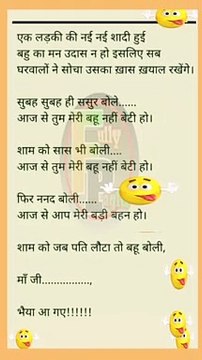 एक लड़की की नई नई शादी हुई
बहु का मन उदास न हो इसलिए सब
घरवालों ने सोचा उसका ख़ास ख़याल रखेंगे।
सुबह सुबह ही ससुर बोले......
आज से तुम मेरी बहू नहीं बेटी हो।
शाम को सास भी बोली....
आज से तुम मेरी बहू नहीं बेटी हो।
फिर ननद बोली......
आज से आप मेरी बड़ी बहन हो।
शाम को जब पति लौटा तो बहू बोली,
माँ जी.................,
भैया आ गए!!!!!!